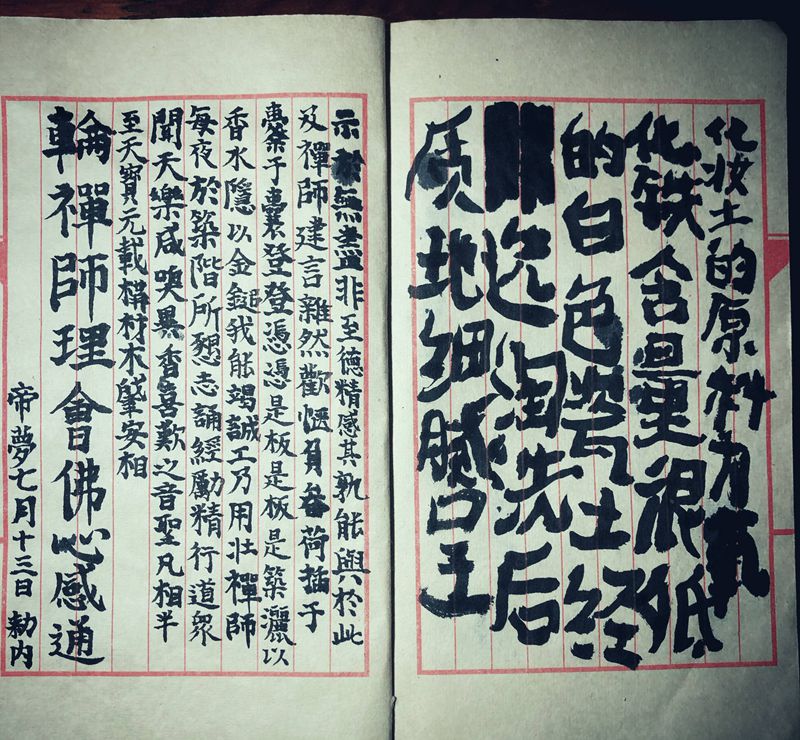 化妆土的原料为氧
化铁含量很低
的白色瓷土经
过淘洗后
质地细腻呈
示於無盡非至德精感其孰能與於此
及禪師建言雜然歡愜負畚荷插于
橐築于囊登登憑憑是板是板是築灑以
香水隱以金鎚我能竭誠工乃用壯禪師
每夜於築階所懇志誦經勵精行道眾
聞天樂咸嗅異香喜歎之音聖凡相半
至天寶元載構材木肇安相
輪禪師理會佛心感通
帝夢七月十三日勅内